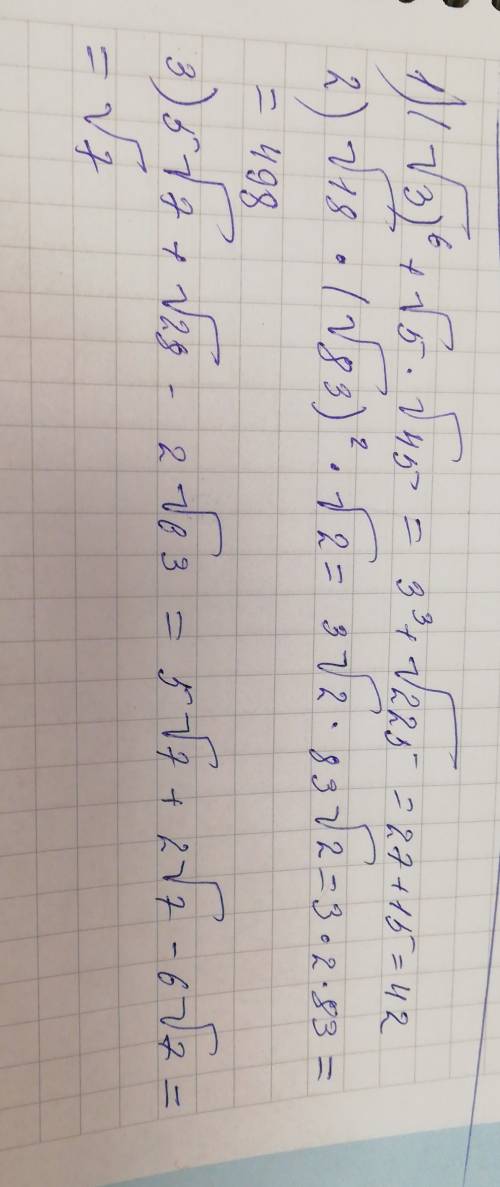 1) (√3)⁶ + √5 · √45 = 3³ + √225 = 27 + 15 = 42
2) √18 · (√83)² · √2 = 3√2 · 83√2 = 3 · 2 · 83 =
= 498
3) 5√7 + √28 - 2√63 = 5√7 + 2√7 - 6√7 =
= √7